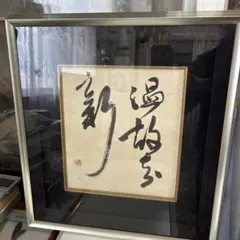 温故知
新